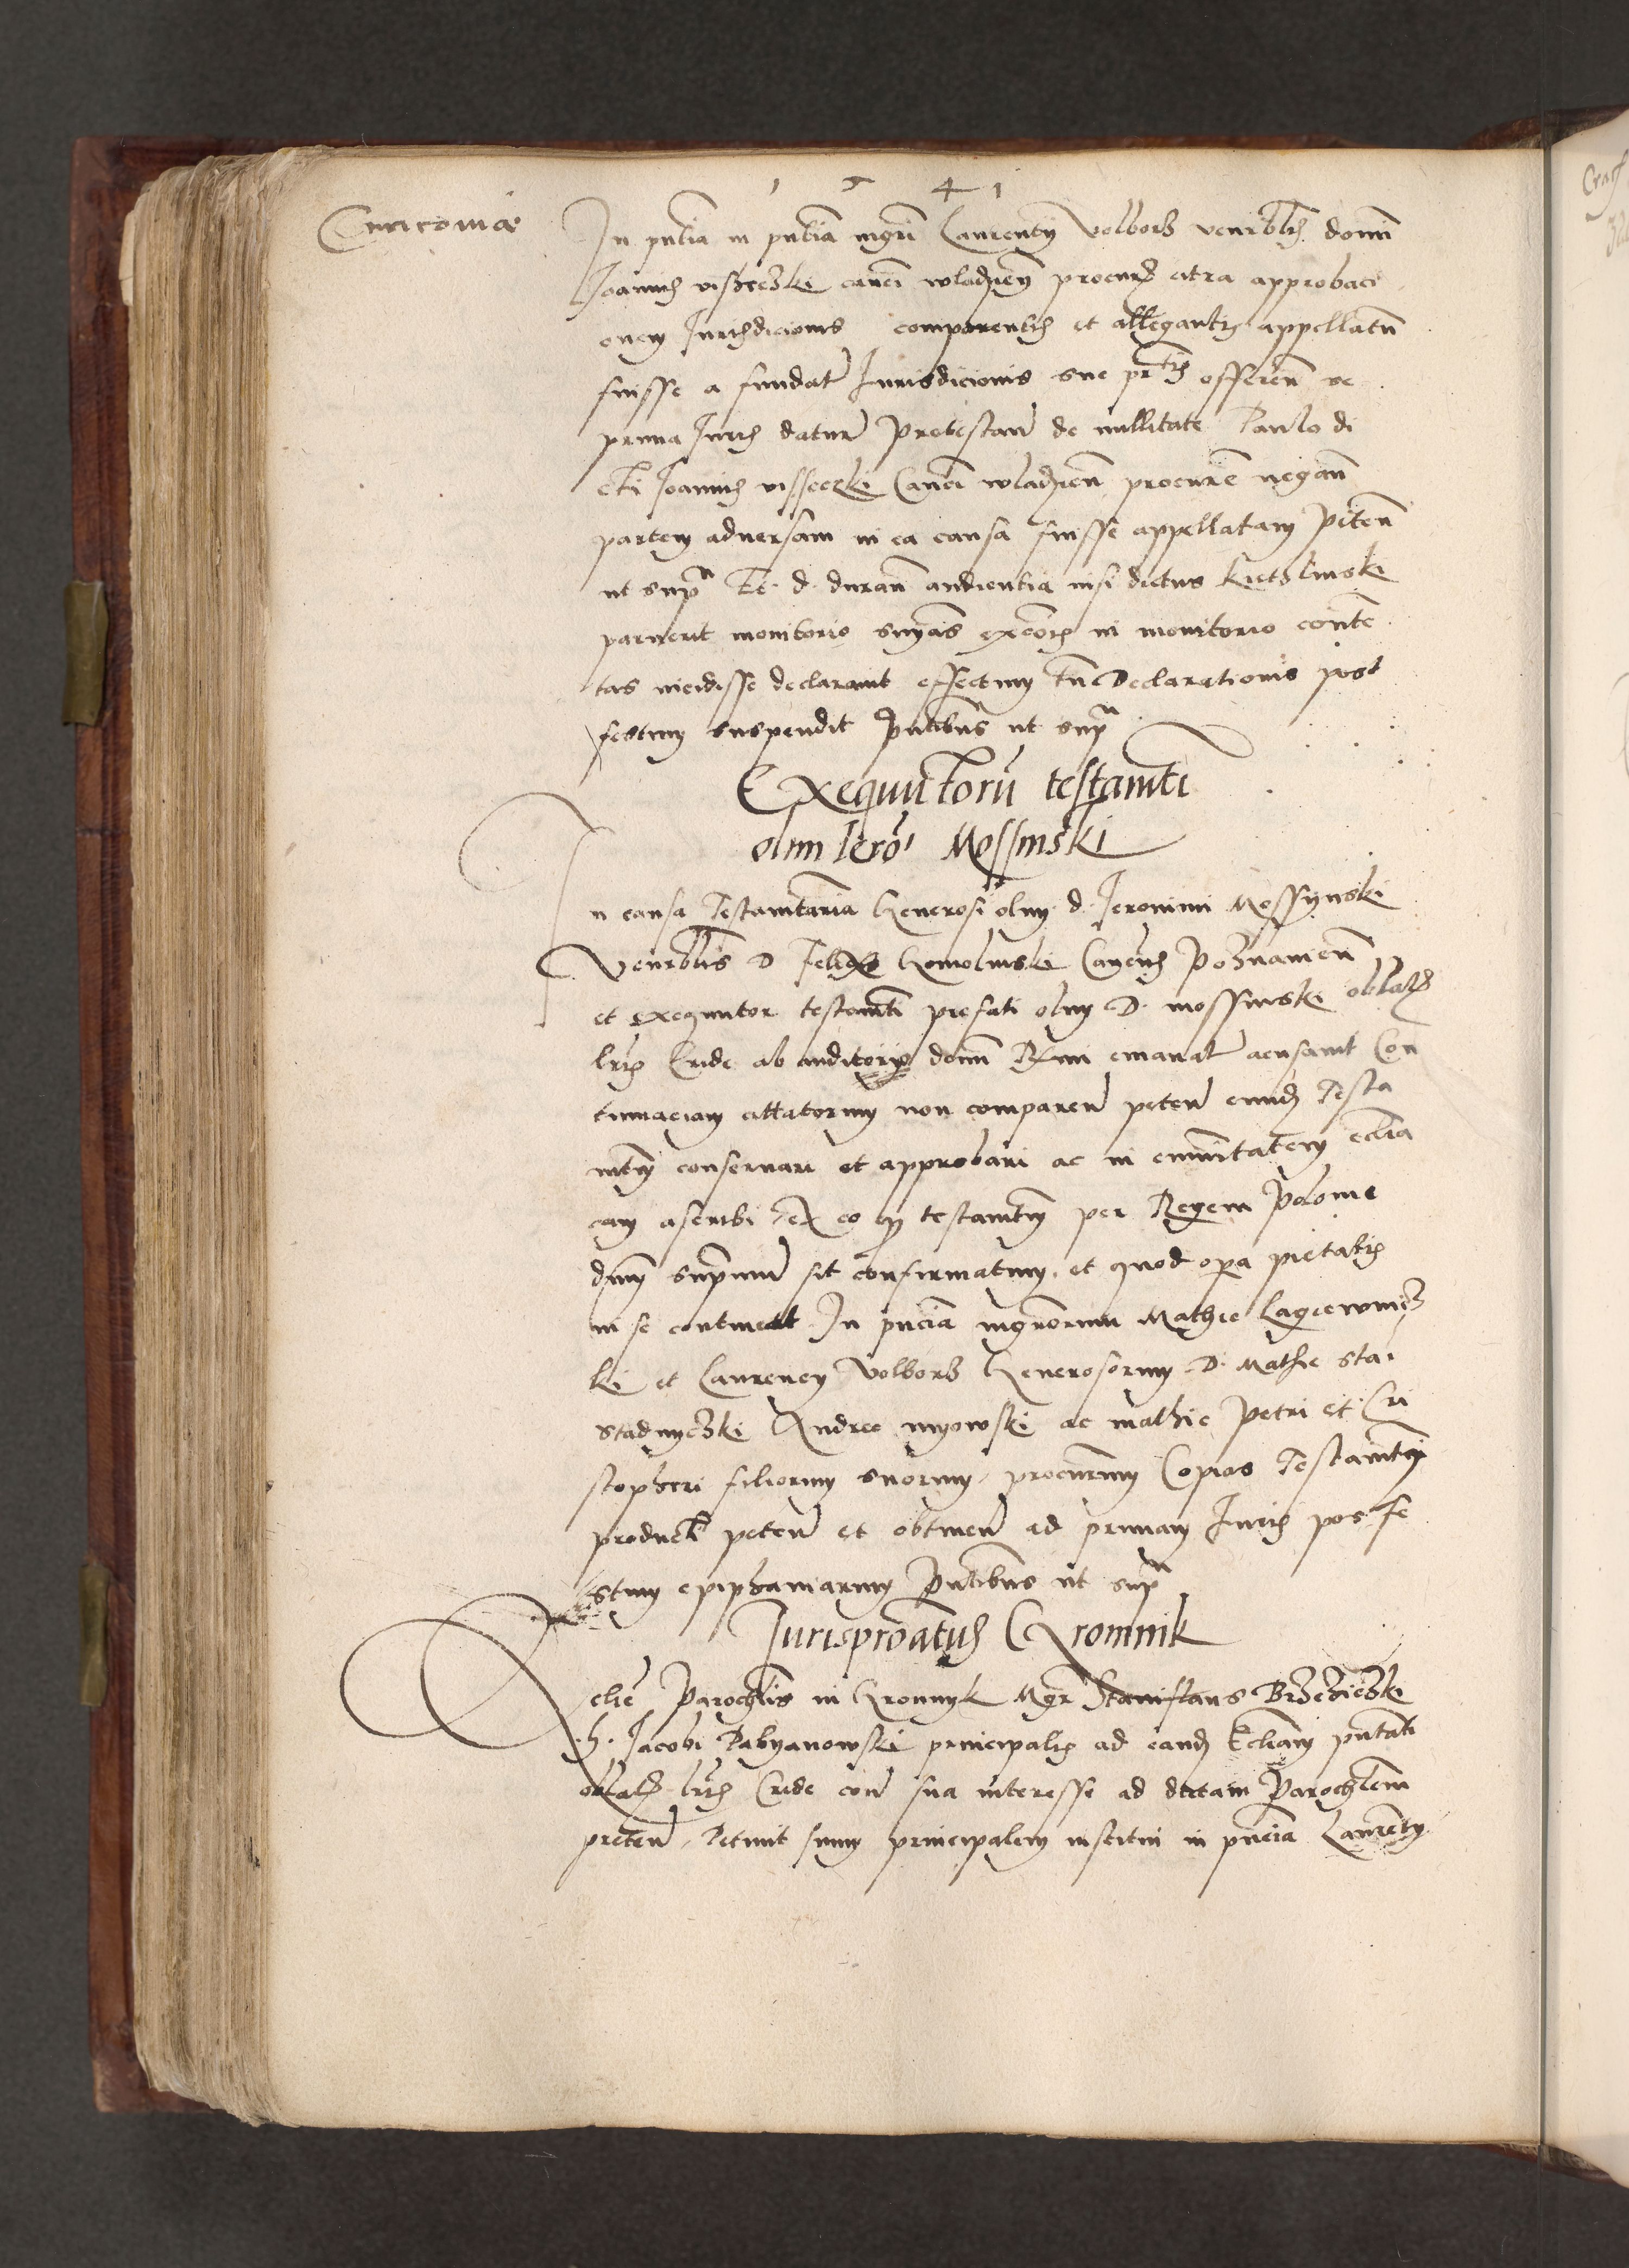 1 5 4 1
Cracoviæ
In pñtia m pñtia mgri Laurentÿ Volborz venrblis domi
Joannis visseczki canci wladzien procuris citra approbaci
onem Jurisdicionis comparentis et allegantis appellatũ
fuisse a fundat Jurisdicionis sue pr̃tis offeren se
prima Juris daturũ Protestan de nullitate Paulo di
cti Joannis visseczki Canci wladzien procure negan
partem adversam in ea causa fuisse appellatam Peten
ut supra Et d. duran audientia nisi dictus
paruerit monitorio snias excois in monitorio conte
tas incidisse declaravit effectum tñ Declarationis post
festum suspendit Pñtibus ut supra
Exequutorũ testamti
olim Iero' Mossinski
In causa Testamtaria Generosi olim d. Jeronimi Mossÿnski
Venrblis D Felix Cancus Poznanien
et exequutor testamti prefati olim D. mossinski oblatis
lris Cride ab auditorio domi Rmi emanat acusavit Con
tumaciam citatorum non comparen peten eundem Testa
mtm conservari et approbari ac in emunitatem eclia
cam ascribi ex eo q testamtm per Regem Polonie
dnm suprmu sit confirmatum et quod opera pietatis
in se contineat In pñcia mgrorum Mathie Lagiewnicz
ki et Laurency Volborz Generosorum D. Mathie sta
stadnyczki Andree myowski ac mathie Petri et Cri
stopheri filiorum suorum procurmm Copias Testamti
product peten et obtinen ad primam Juris post Fe
stum epiphaniarum Pñtibus ut supra
Jurispronatus Gromnik
Eclie Parochlis in Gromnyk Mgr Stanislaus Brzezieczki
h. Jacobi Pabyanowski principalis ad eandem Ecliam pñtati
oblatis lris Cride con sua interesse ad dictam Parochlem
preten Petivit suum principalem institui in pñcia Laurenty